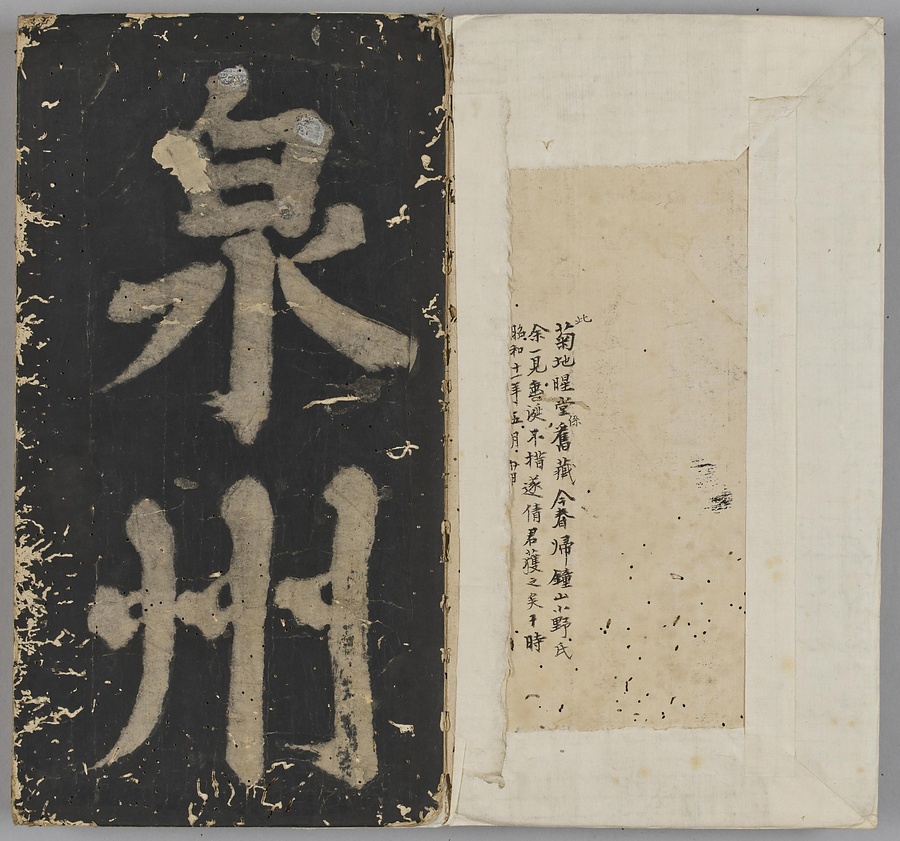 此菊地惺堂係舊藏今春帰鐘山小野氏
余一見垂涎不措遂倩君獲之矣于時
昭和十一年五月
泉州